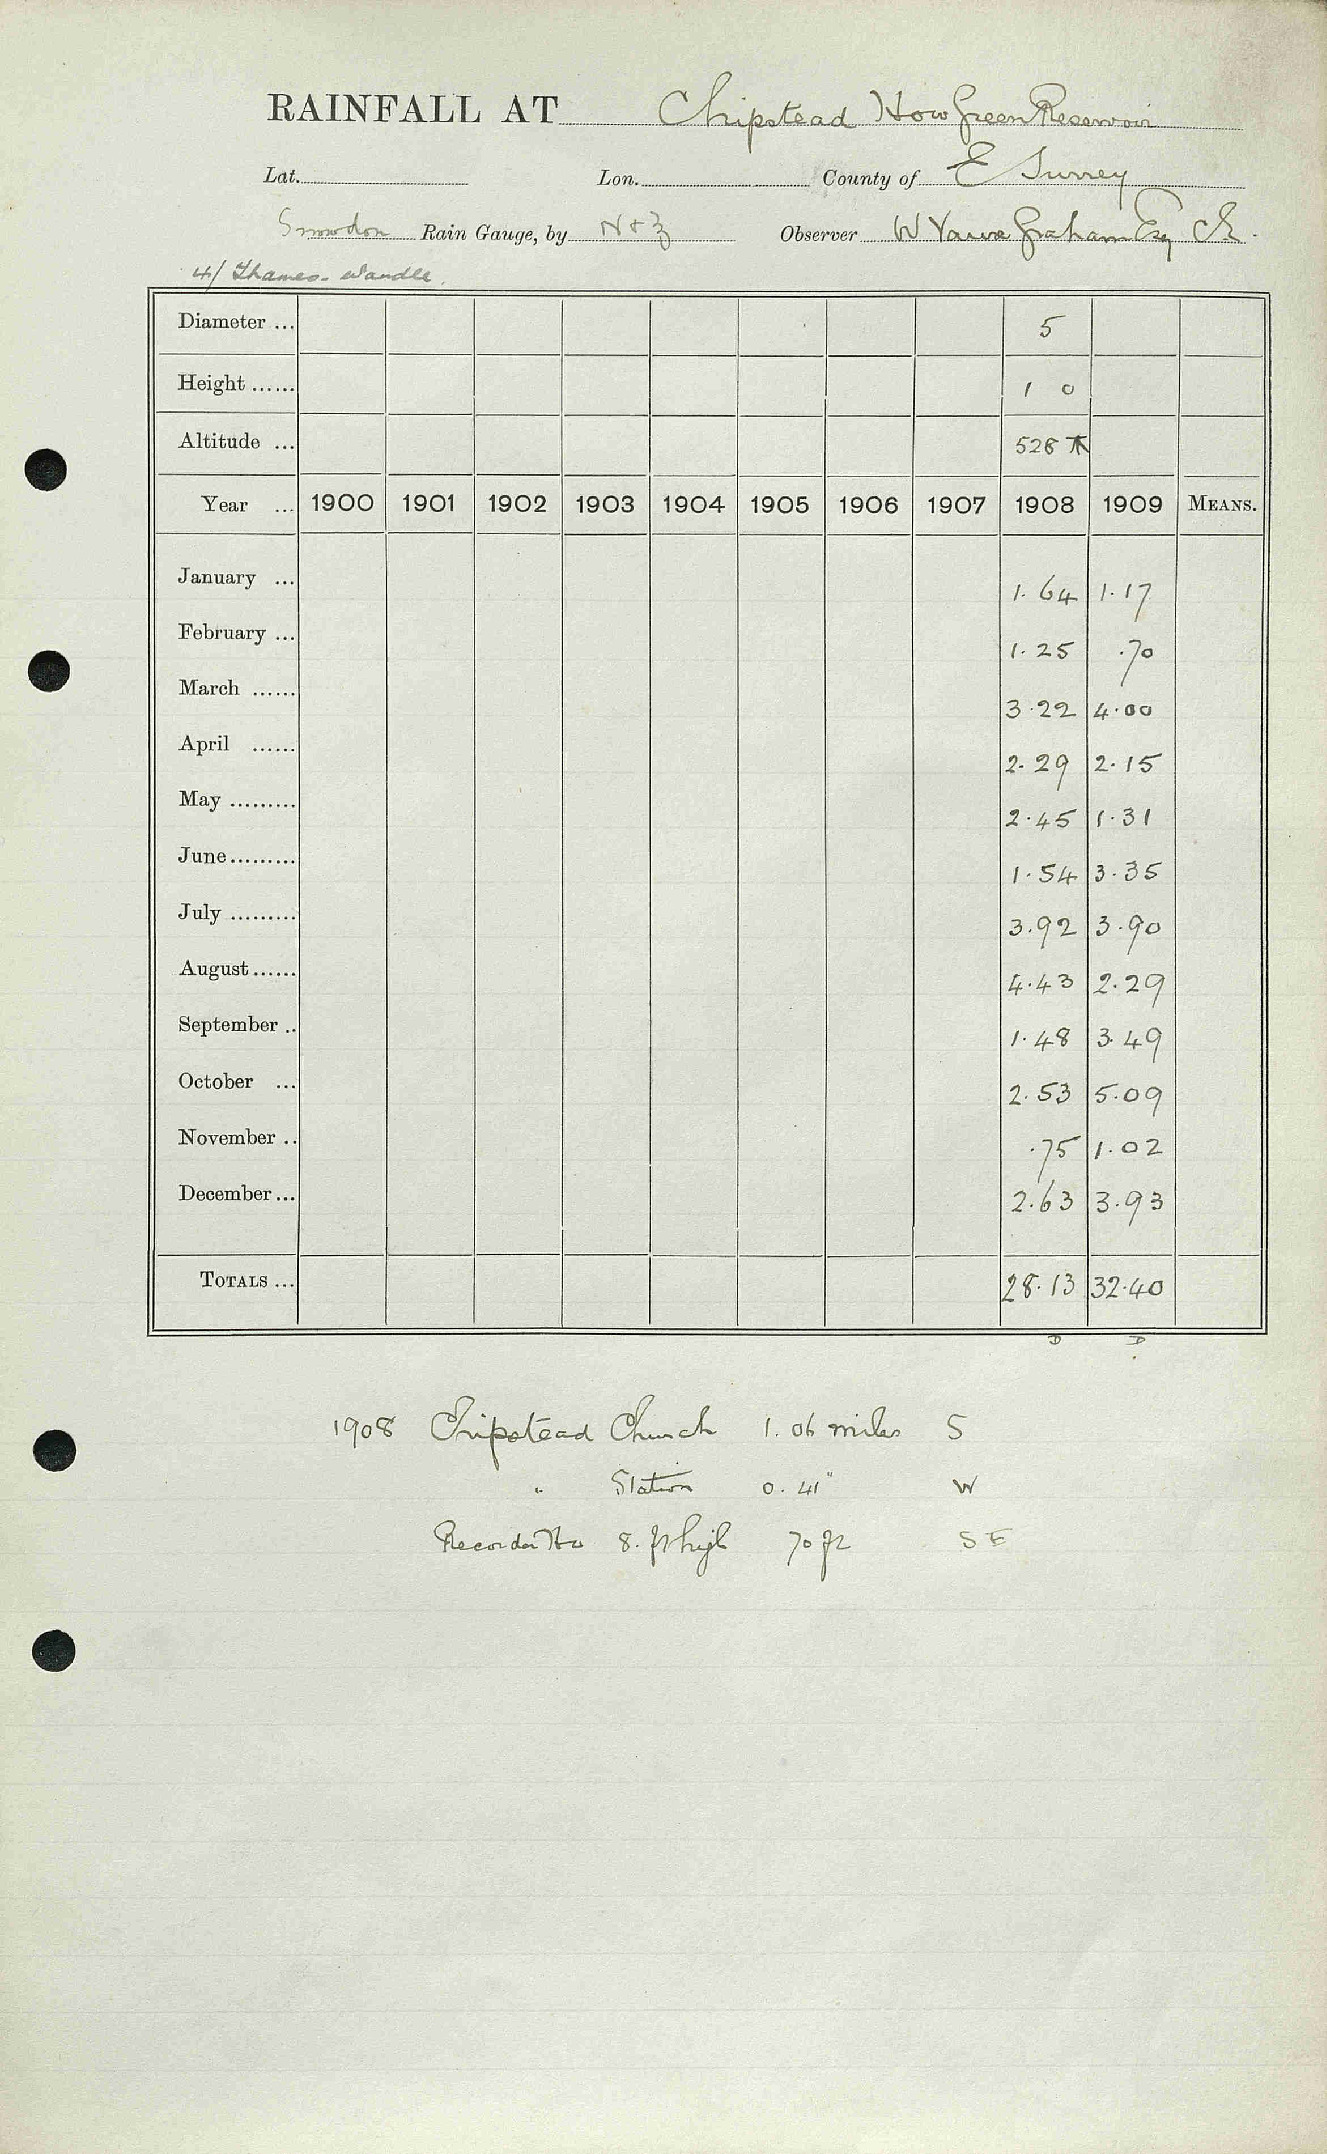 RAINFALL AT Chipstead How Green Reservoir
Lat. Lon. County of E Surrey
Snowdon Rain Gauge, by N & Z Observer W Graham Esq CE
4/ Thames - Wandle.
Diameter ... 5
Height ...... 1 0
Altitude ... 528
Year ... 1900 1901 1902 1903 1904 1905 1906 1907 1908 1909 MEANS.
January ... 1.64 1.17
February ... 1.25 .70
March ...... 3.22 4.00
April ...... 2.29 2.15
May ......... 2.45 1.31
June ......... 1.54 3.35
July ......... 3.92 3.90
August ...... 4.43 2.29
September .. 1.48 3.49
October ... 2.53 5.09
November .. .75 1.02
December ... 2.63 3.93
TOTALS ... 28.13 32.40
D D
1908 Chipstead Church 1.06 miles S
" Station 0.41 " W
Recorder Ho 8. ft high 70 ft SE